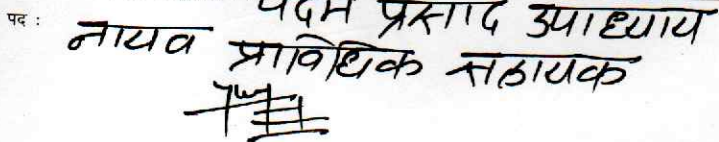 पदम प्रसाद उपाध्याय
पद : नायव प्राविधिक सहायक